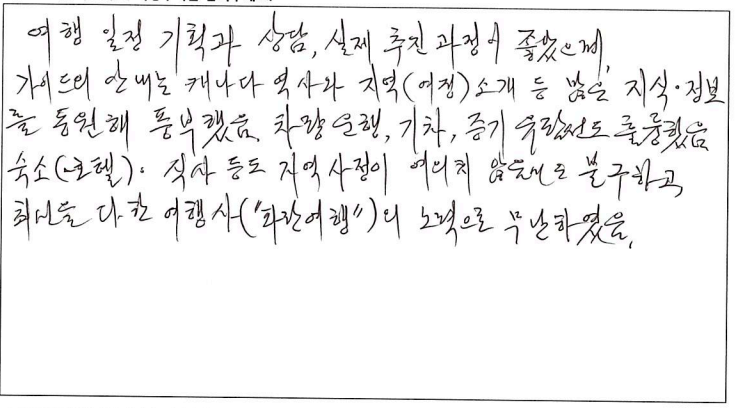 여행 일정 기획과 상담, 실제 추진 과정이 좋았으며,
가이드의 안내는 캐나다 역사와 지역(여정) 소개 등 많은 지식·정보
를 동원해 풍부했음. 차량 운행, 기차, 증기 유람선도 훌륭했음
숙소(호텔)· 식사 등도 지역 사정이 여의치 않음에도 불구하고,
최선을 다한 여행사("파란여행")의 노력으로 무난하였음.